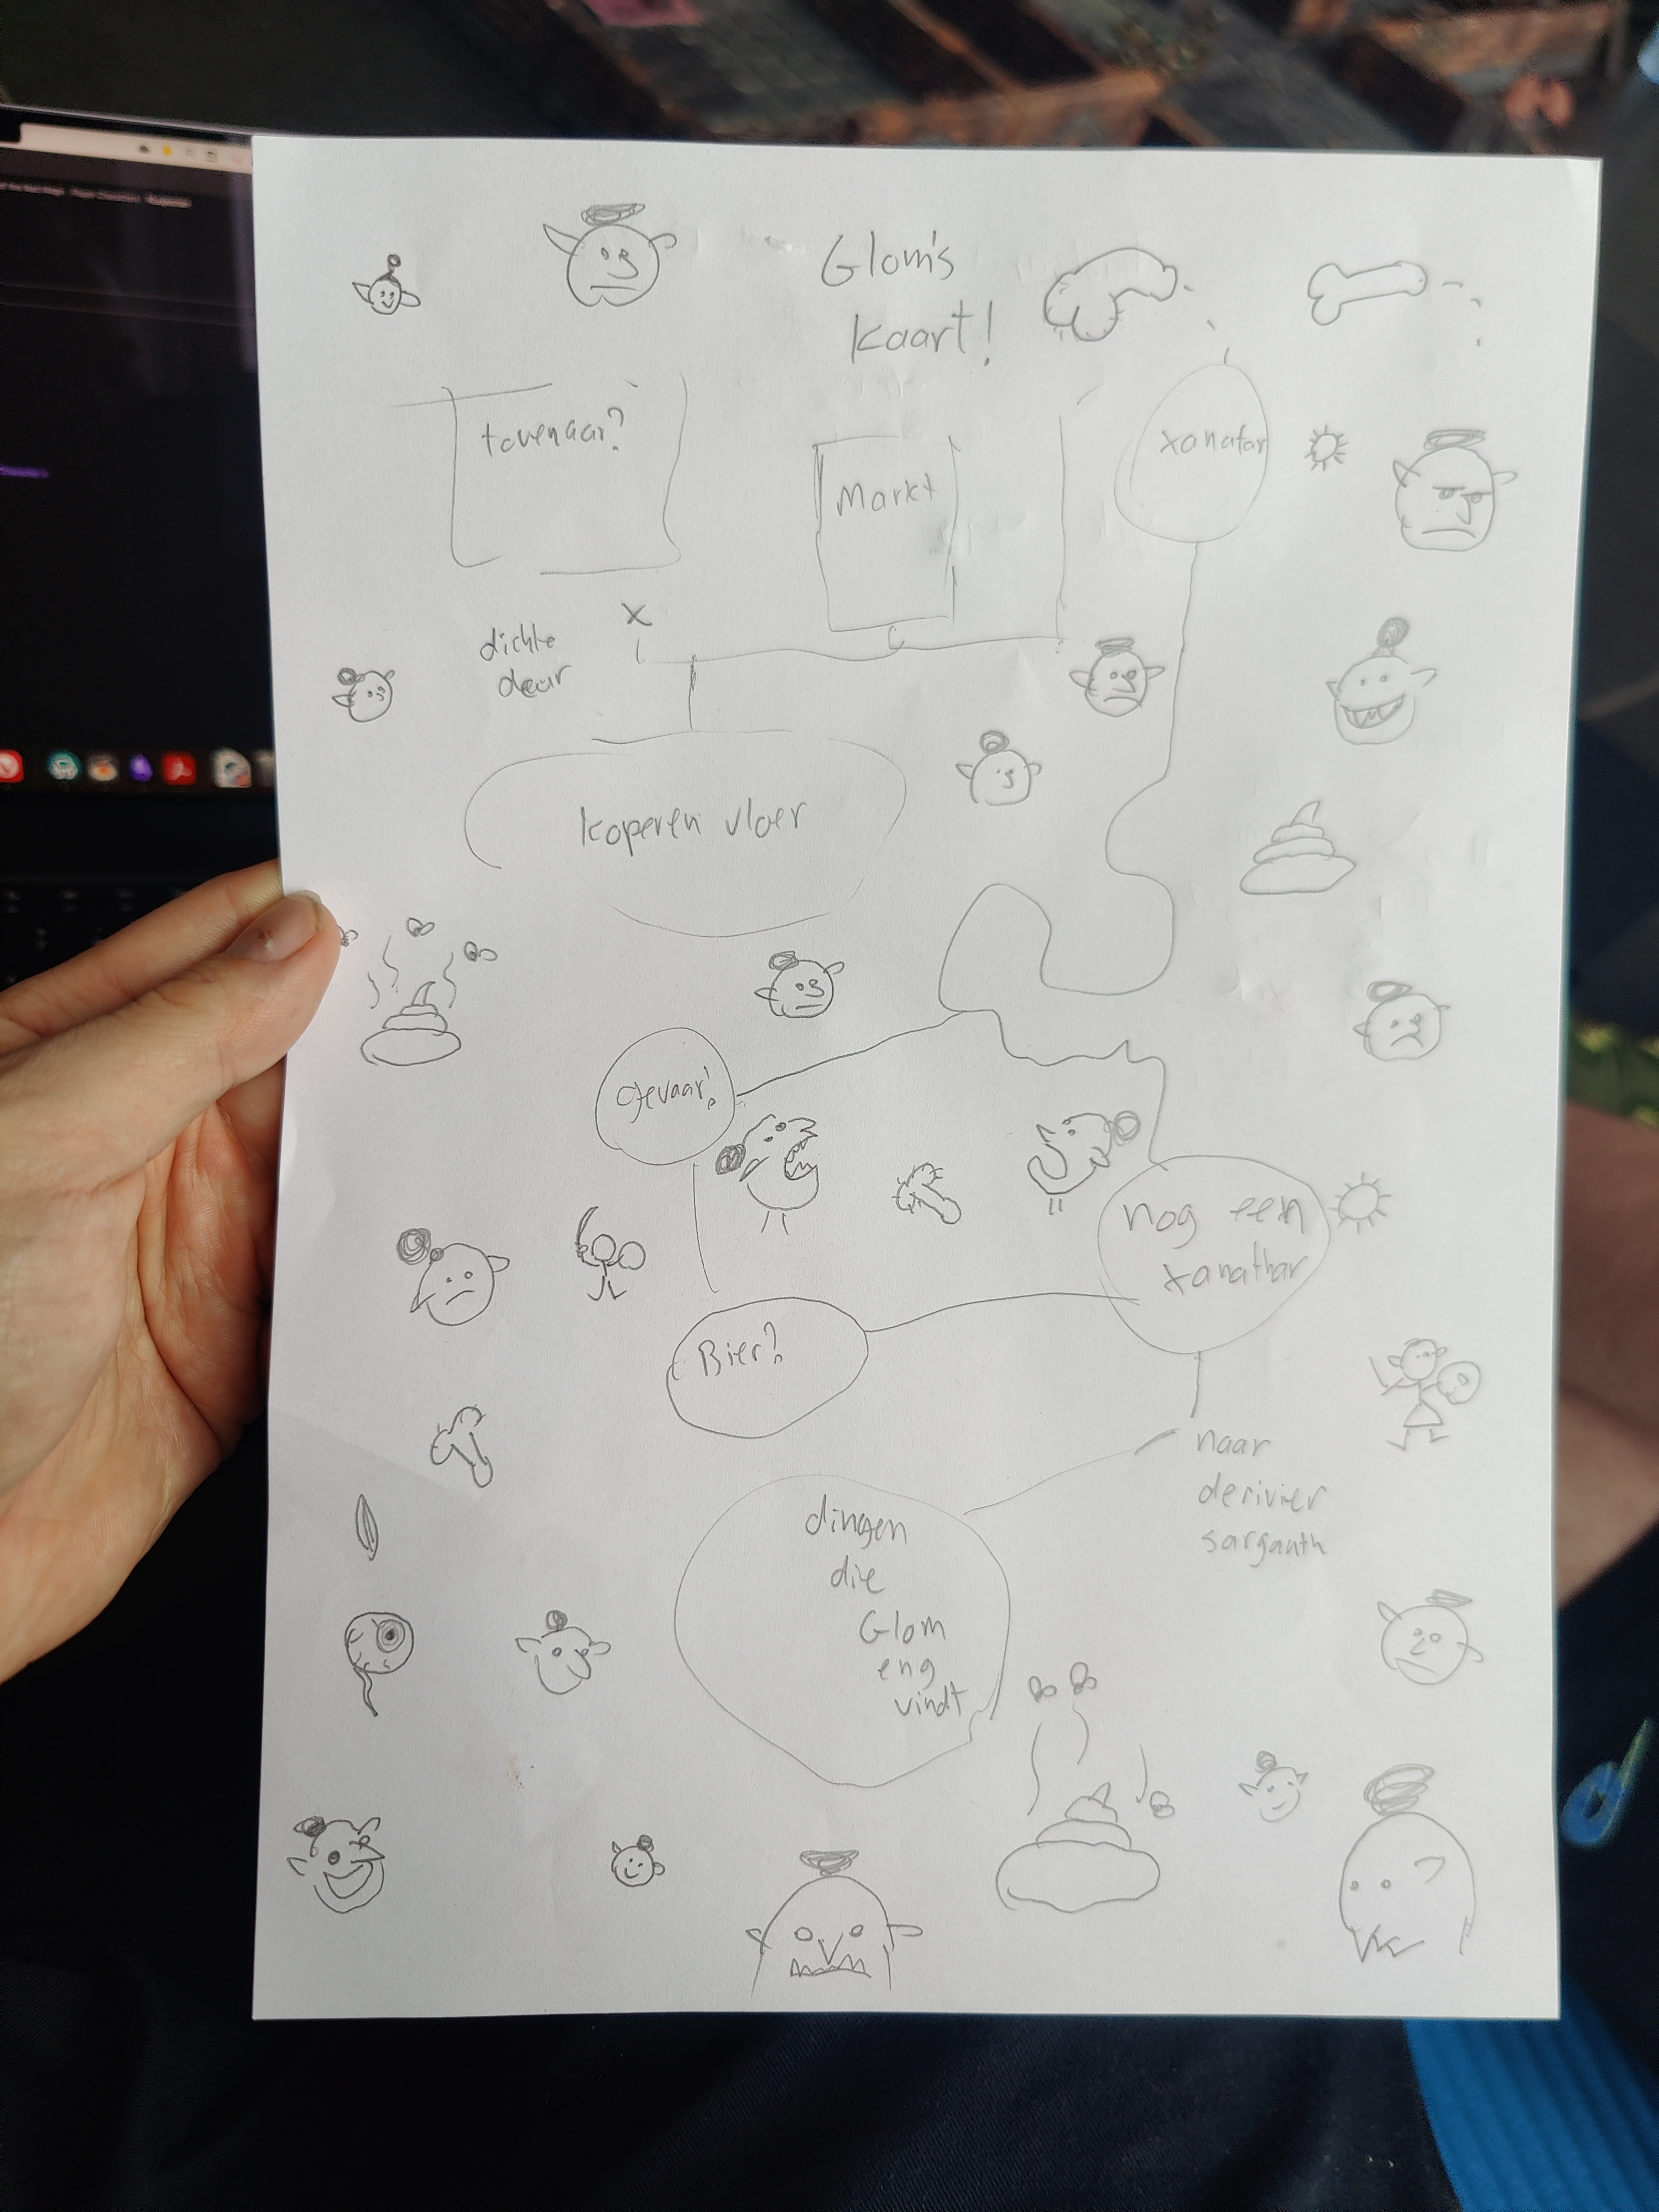 Glom's
kaart!
tovenaar?
Markt
xanatar
X
dichte
deur
koperen vloer
Gevaar!
nog een
xanathar
Bier?
naar
derivier
sargauth
dingen
die
Glom
eng
vindt